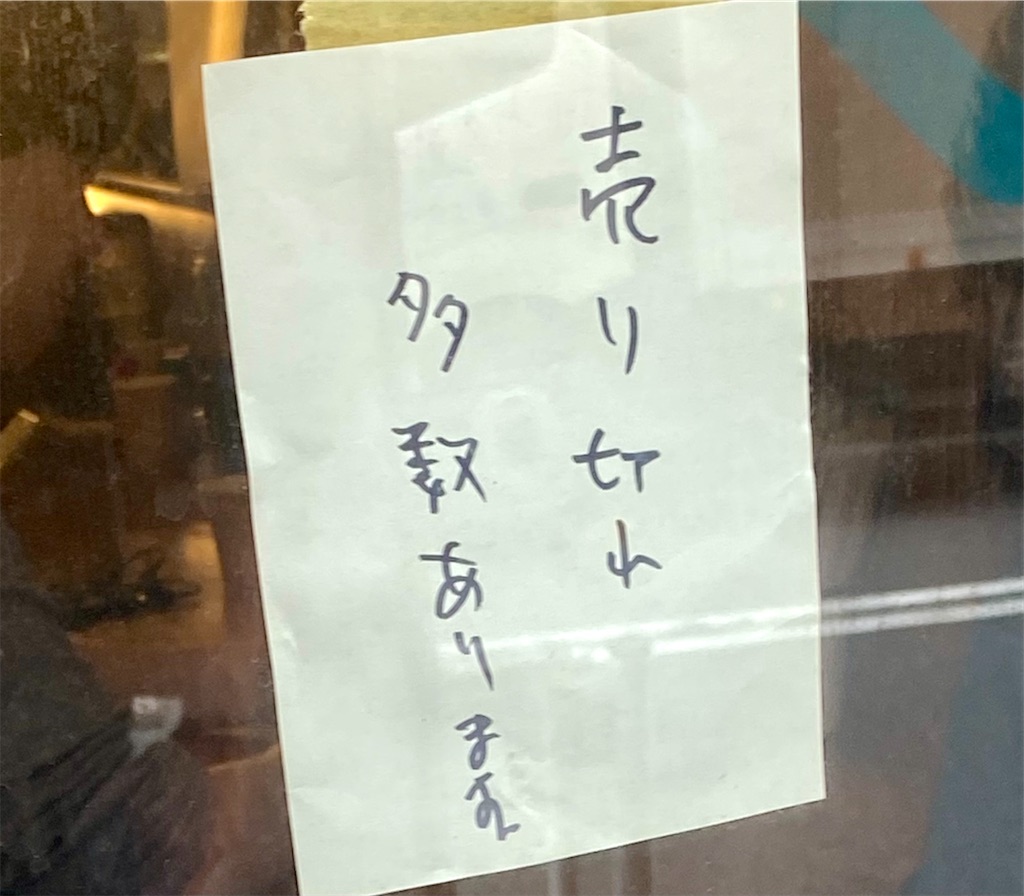 売り切れ
多数あります